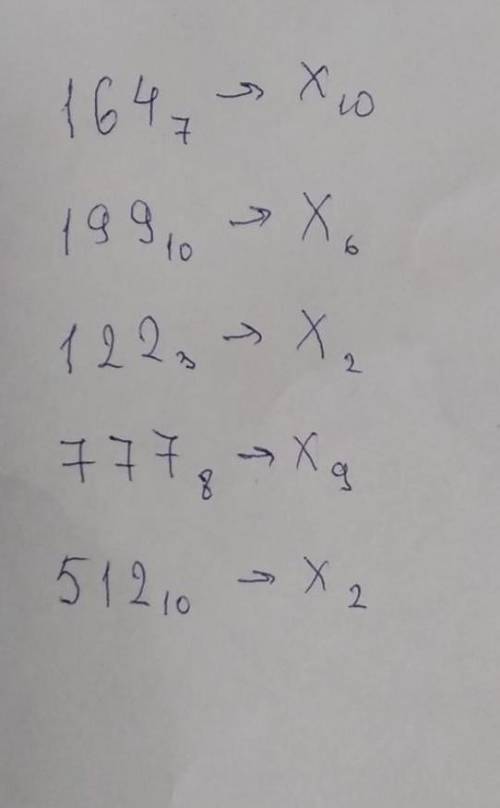 164₇ → X₁₀
199₁₀ → X₆
122₃ → X₂
777₈ → X₉
512₁₀ → X₂